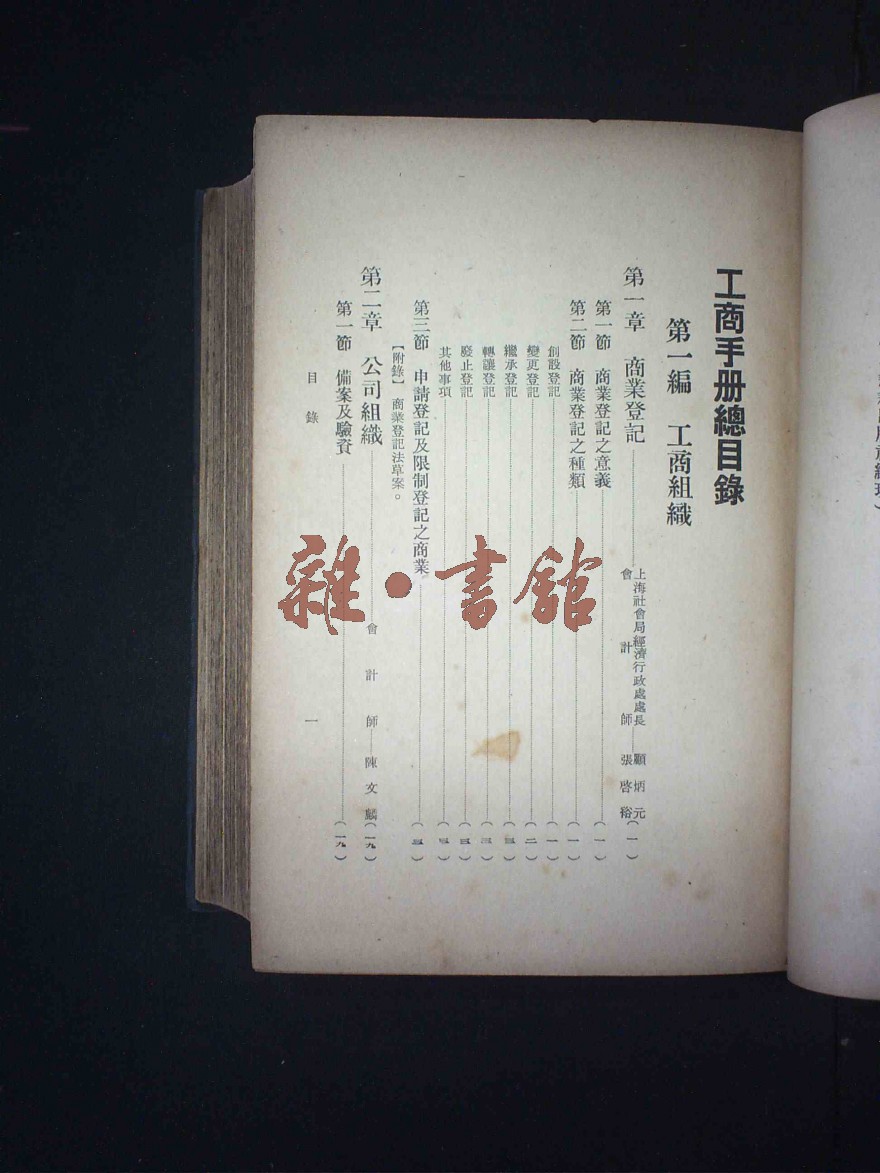 工商手册總目錄
第一編 工商組織
第一章 商業登記 上海社會局經濟行政處處長 顧炳元 會計師 張啓裕 (一)
第一節 商業登記之意義 (一)
第二節 商業登記之種類 (一)
創設登記 (一)
變更登記 (二)
繼承登記 (三)
轉讓登記 (三)
廢止登記 (三)
其他事項 (三)
第三節 申請登記及限制登記之商業 (三)
【附錄】 商業登記法草案。
第二章 公司組織 會計師 陳文麟 (一九)
第一節 備案及驗資 (一九)
目錄 一
雜·書館